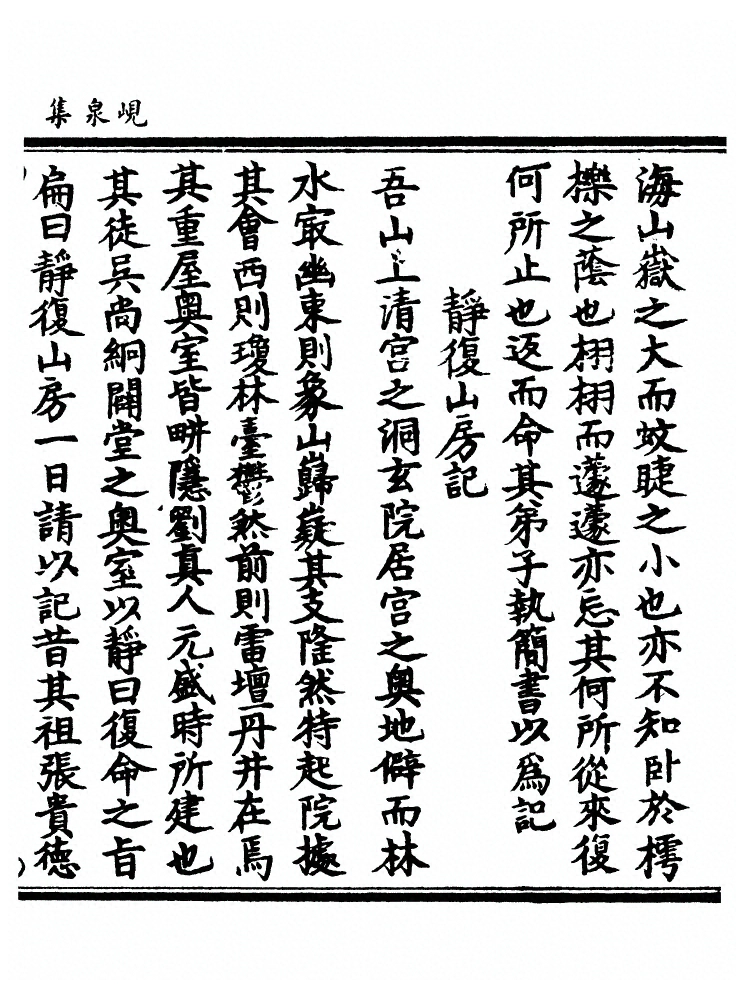 峴泉集
海山嶽之大而蚊睫之小也亦不知卧於樗
擽之蔭也栩栩而蘧蘧亦忘其何所從來復
何所止也返而命其弟子執簡書以為記
靜復山房記
吾山上清宫之洞玄院居宫之奥地僻而林
水㝡幽東則象山巋嶷其支隆然特起院據
其會西則瓊林臺鬱然前則雷壇丹井在焉
其重屋奥室皆畊隱劉真人元盛時所建也
其徒吴尚絅闢堂之奥室以靜曰復命之旨
扁曰靜復山房一日請以記昔其祖張貴德